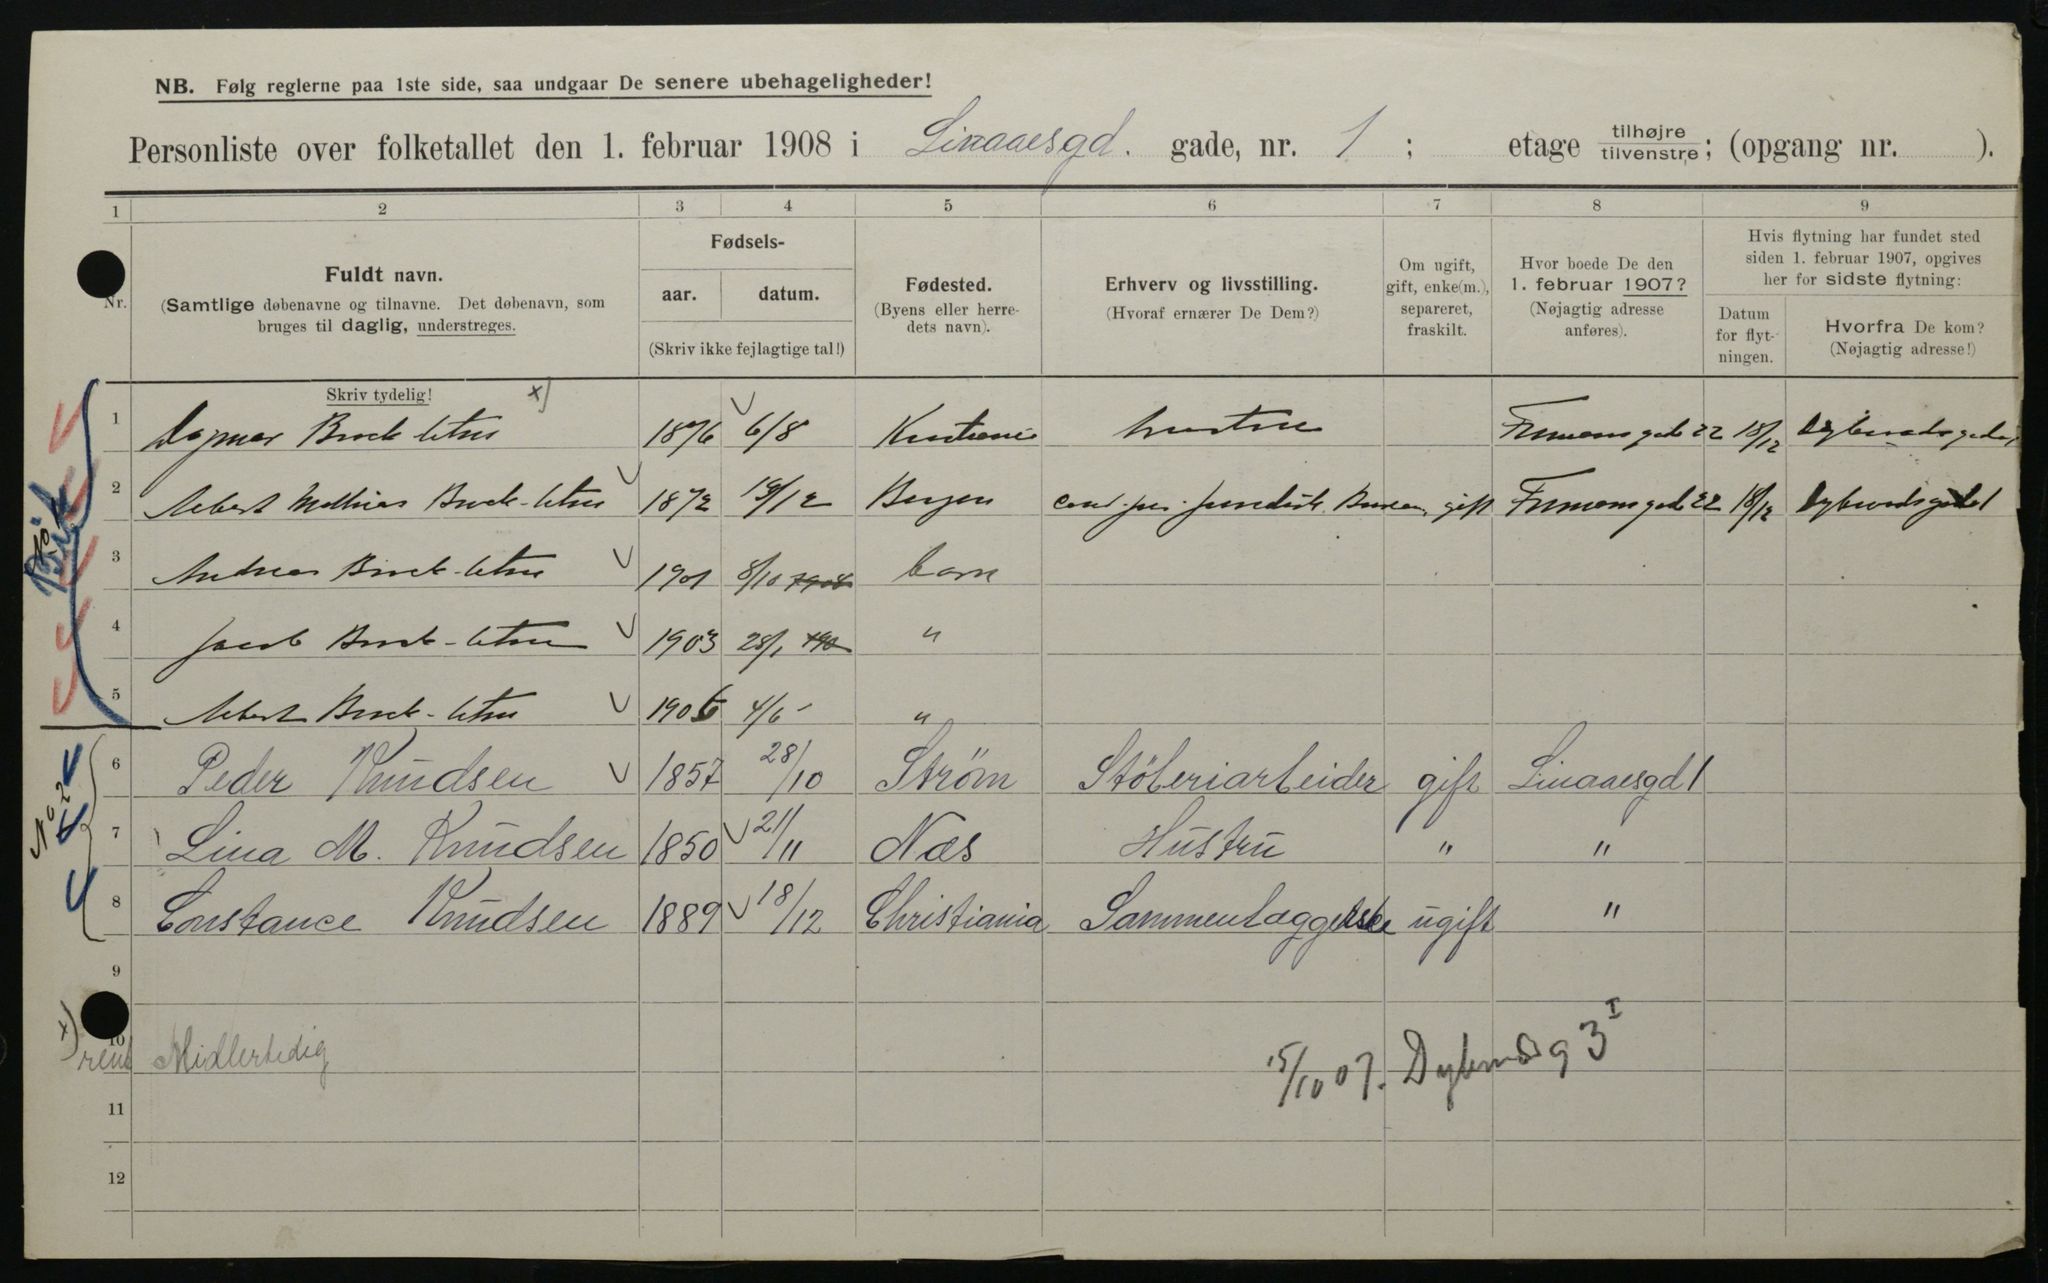 NB. Følg reglerne paa 1ste side, saa undgaar De senere ubehageligheder!
Personliste over folketallet den 1. februar 1908 i Linaaesgd. gade, nr. 1 ; etage tilhøjre tilvenstre ; (opgang nr. ).
1 2 3 4 5 6 7 8 9
Nr.
Fuldt navn.
(Samtlige døbenavne og tilnavne. Det døbenavn, som
bruges til daglig, understreges.
Skriv tydelig!
Fødsels-
aar. datum.
(Skriv ikke fejlagtige tal!)
Fødested.
(Byens eller herre-
dets navn).
Erhverv og livsstilling.
(Hvoraf ernærer De Dem?)
Om ugift,
gift, enke(m.),
separeret,
fraskilt.
Hvor boede De den
1. februar 1907?
(Nøjagtig adresse
anføres).
Hvis flytning har fundet sted
siden 1. februar 1907, opgives
her for sidste flytning:
Datum
for flyt-
ningen.
Hvorfra De kom?
(Nøjagtig adresse!)
x)
1 Dagmar Brock 1876 6/8 Kristiania hustru 22 18/12
2 Albert Mathias Brock 1872 /12 Bergen cand. jur. gift 22 18/12
3 Andreas Brock 1901 8/10 barn
4 Jacob Brock 1903 28/1 "
5 Albert Brock 1906 4/6 "
6 Peder Knudsen 1857 28/10 Strøm Støberiarbeider gift Linaaesgd 1
7 Lina M. Knudsen 1850 21/11 Næs Hustru " "
8 Constance Knudsen 1889 18/12 Christiania Sammenlæggerske ugift "
9
10
x) Midlertidig
15/10 07. 3 I
11
12